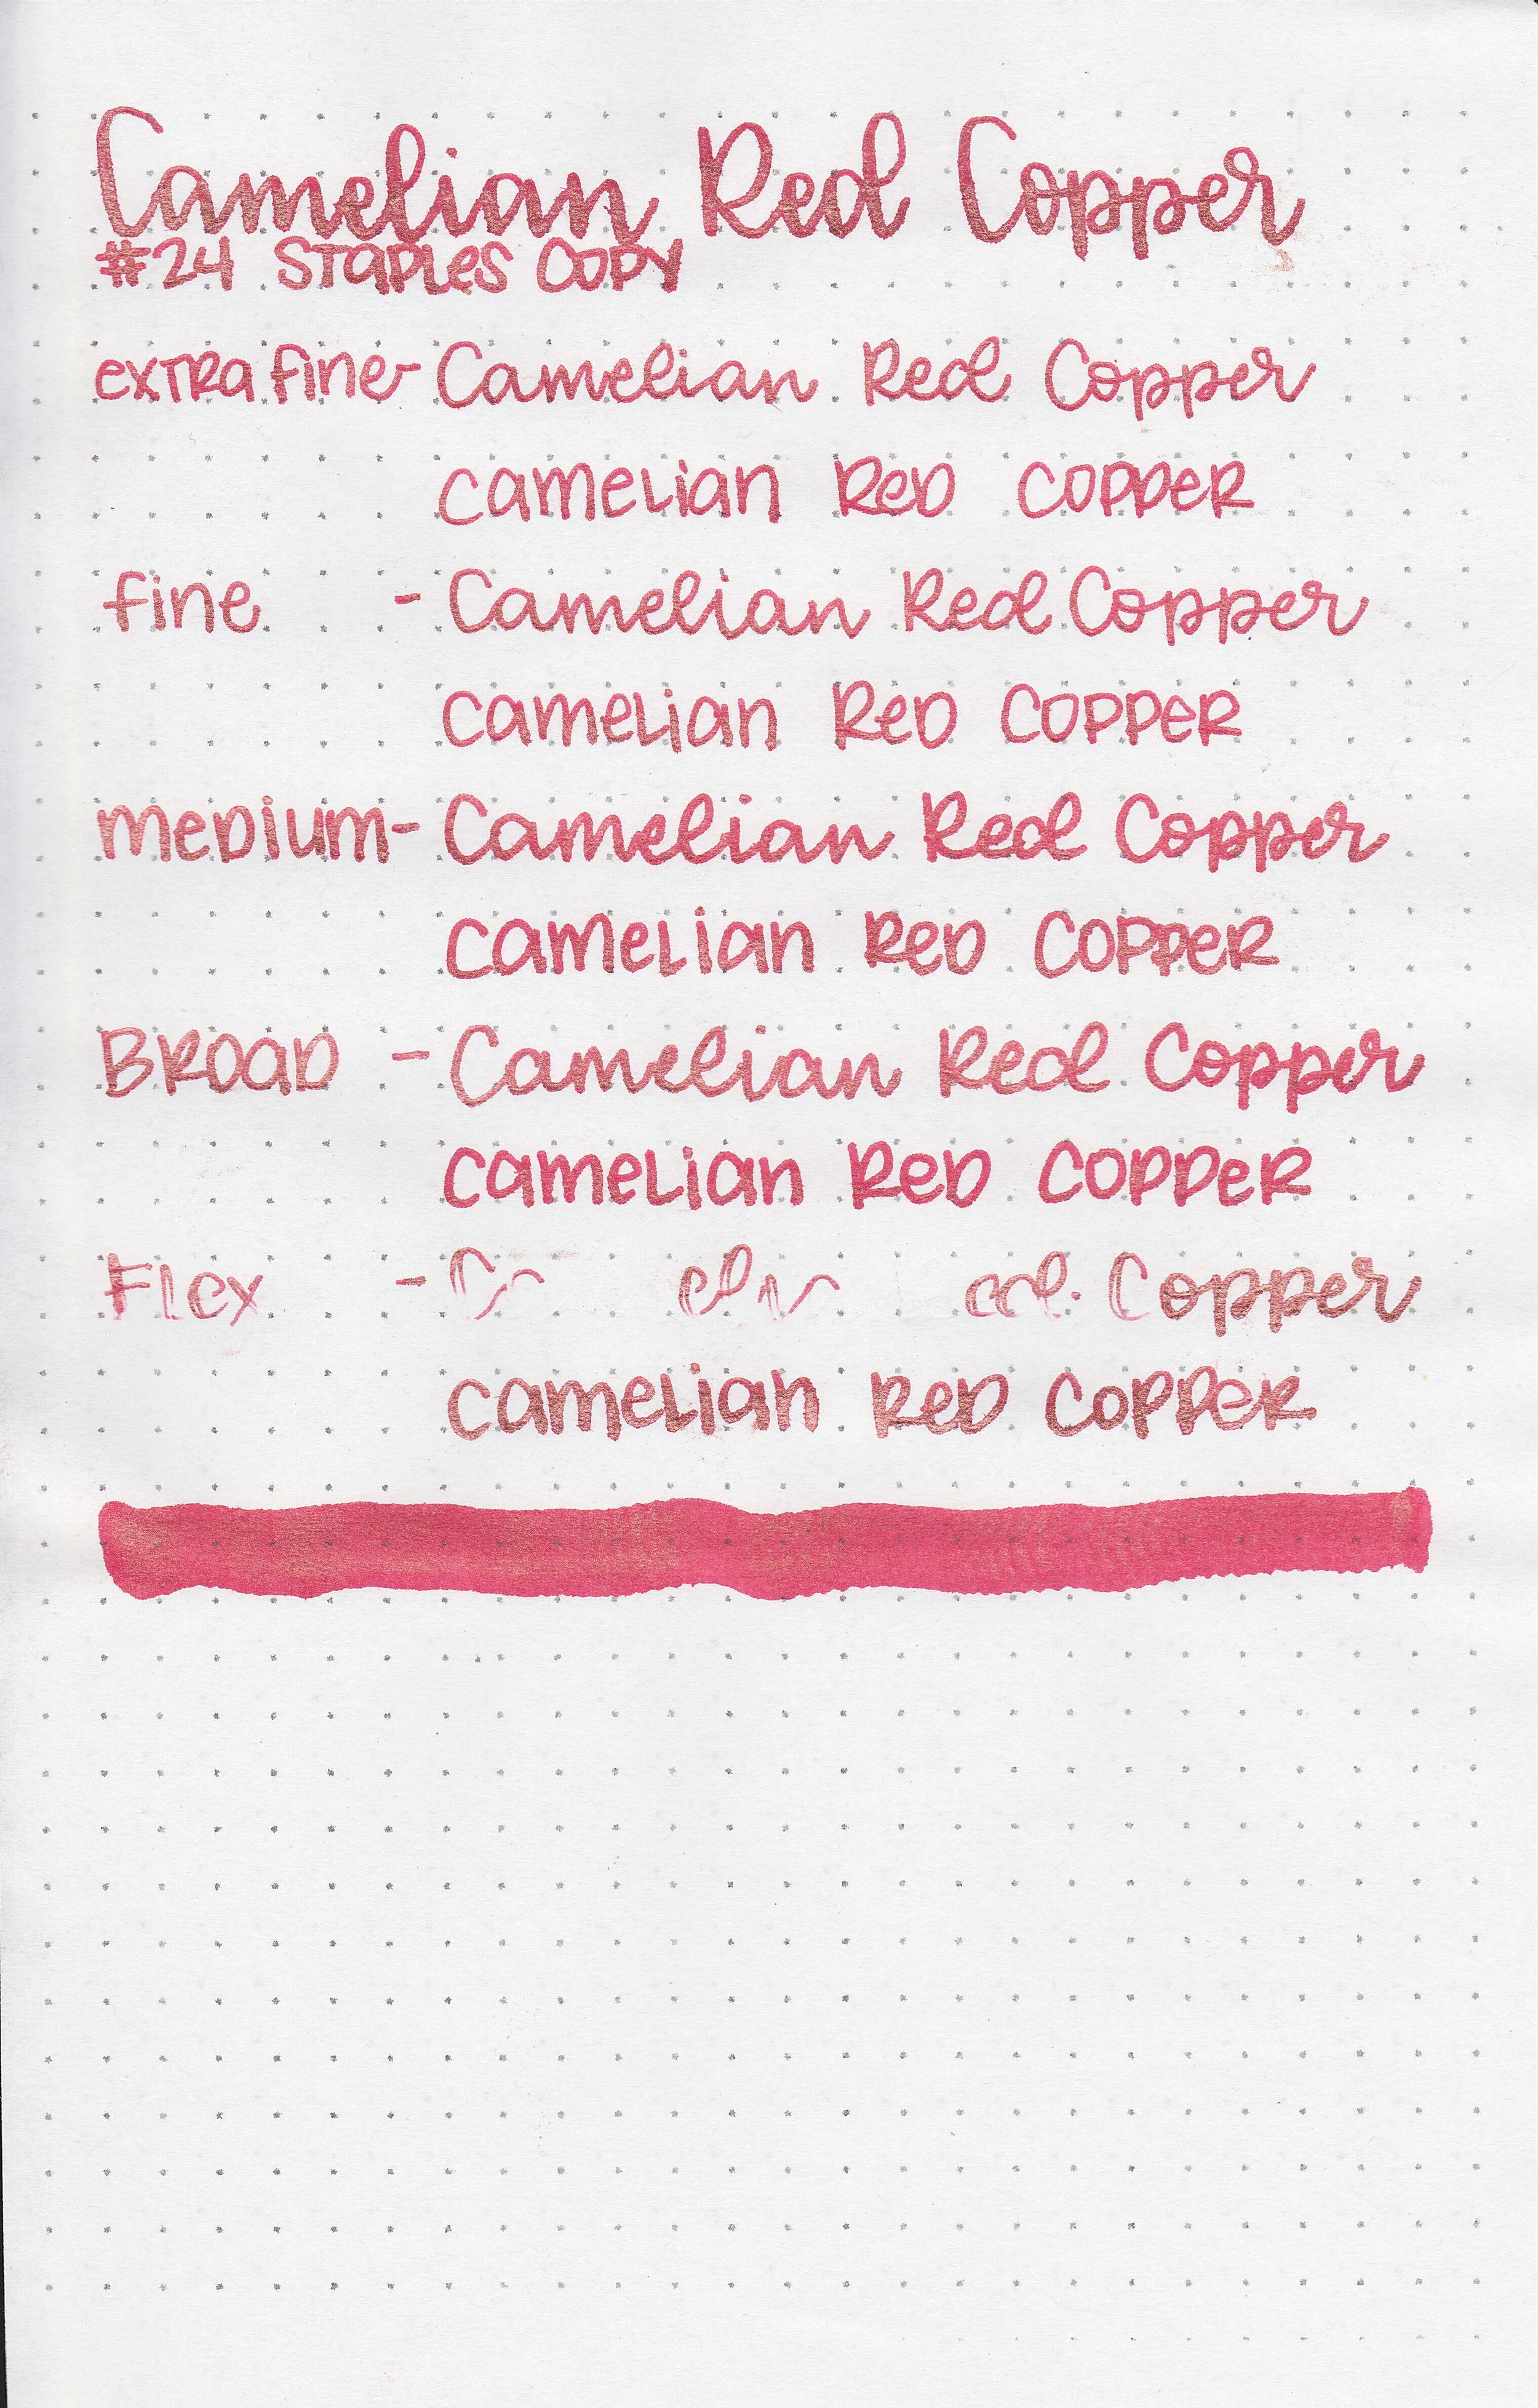 Camelian Red Copper
#24 Staples Copy
extra fine - Camelian Red Copper
Camelian Red Copper
fine - Camelian Red Copper
Camelian Red Copper
medium - Camelian Red Copper
Camelian Red Copper
Broad - Camelian Red Copper
Camelian Red Copper
Flex - Copper
Camelian Red Copper